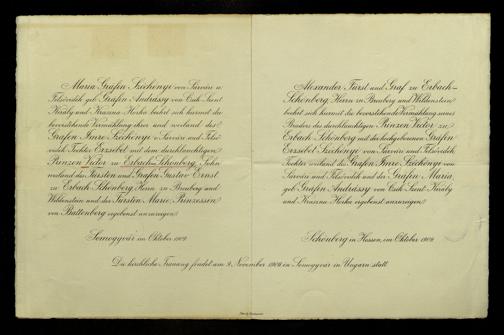 Maria Gräfin Széchényi von Sárvár u.
Felsővidék geb. Gräfin Andrássy von Csík Szent
Király und Kraszna Horka beehrt sich hiermit die
bevorstehende Vermählung ihrer und weiland des
Grafen Imre Széchényi v. Sárvár und Felső-
vidék Tochter Erzsébet mit dem durchlauchtigen
Prinzen Victor zu Erbach-Schönberg, Sohn
weiland des Fürsten und Grafen Gustav Ernst
zu Erbach-Schönberg Herrn zu Breuberg und
Wildenstein und der Fürstin Marie Prinzessin
von Battenberg ergebenst anzuzeigen.
Somogyvár im Oktober 1909.
Alexander Fürst und Graf zu Erbach-
Schönberg, Herrn zu Breuberg und Wildenstein,
beehrt sich hiermit die bevorstehende Vermählung seines
Bruders des durchlauchtigen Prinzen Victor zu
Erbach-Schönberg mit der hochgeborenen Gräfin
Erzsébet Széchényi von Sárvár und Felsővidék,
Tochter weiland des Grafen Imre Széchényi von
Sárvár und Felsővidék und der Gräfin Maria,
geb. Gräfin Andrássy von Csík Szent Király
und Kraszna Horka ergebenst anzuzeigen.
Schönberg in Hessen, im Oktober 1909.
Die kirchliche Trauung findet am 9. November 1909 in Somogyvár in Ungarn statt.